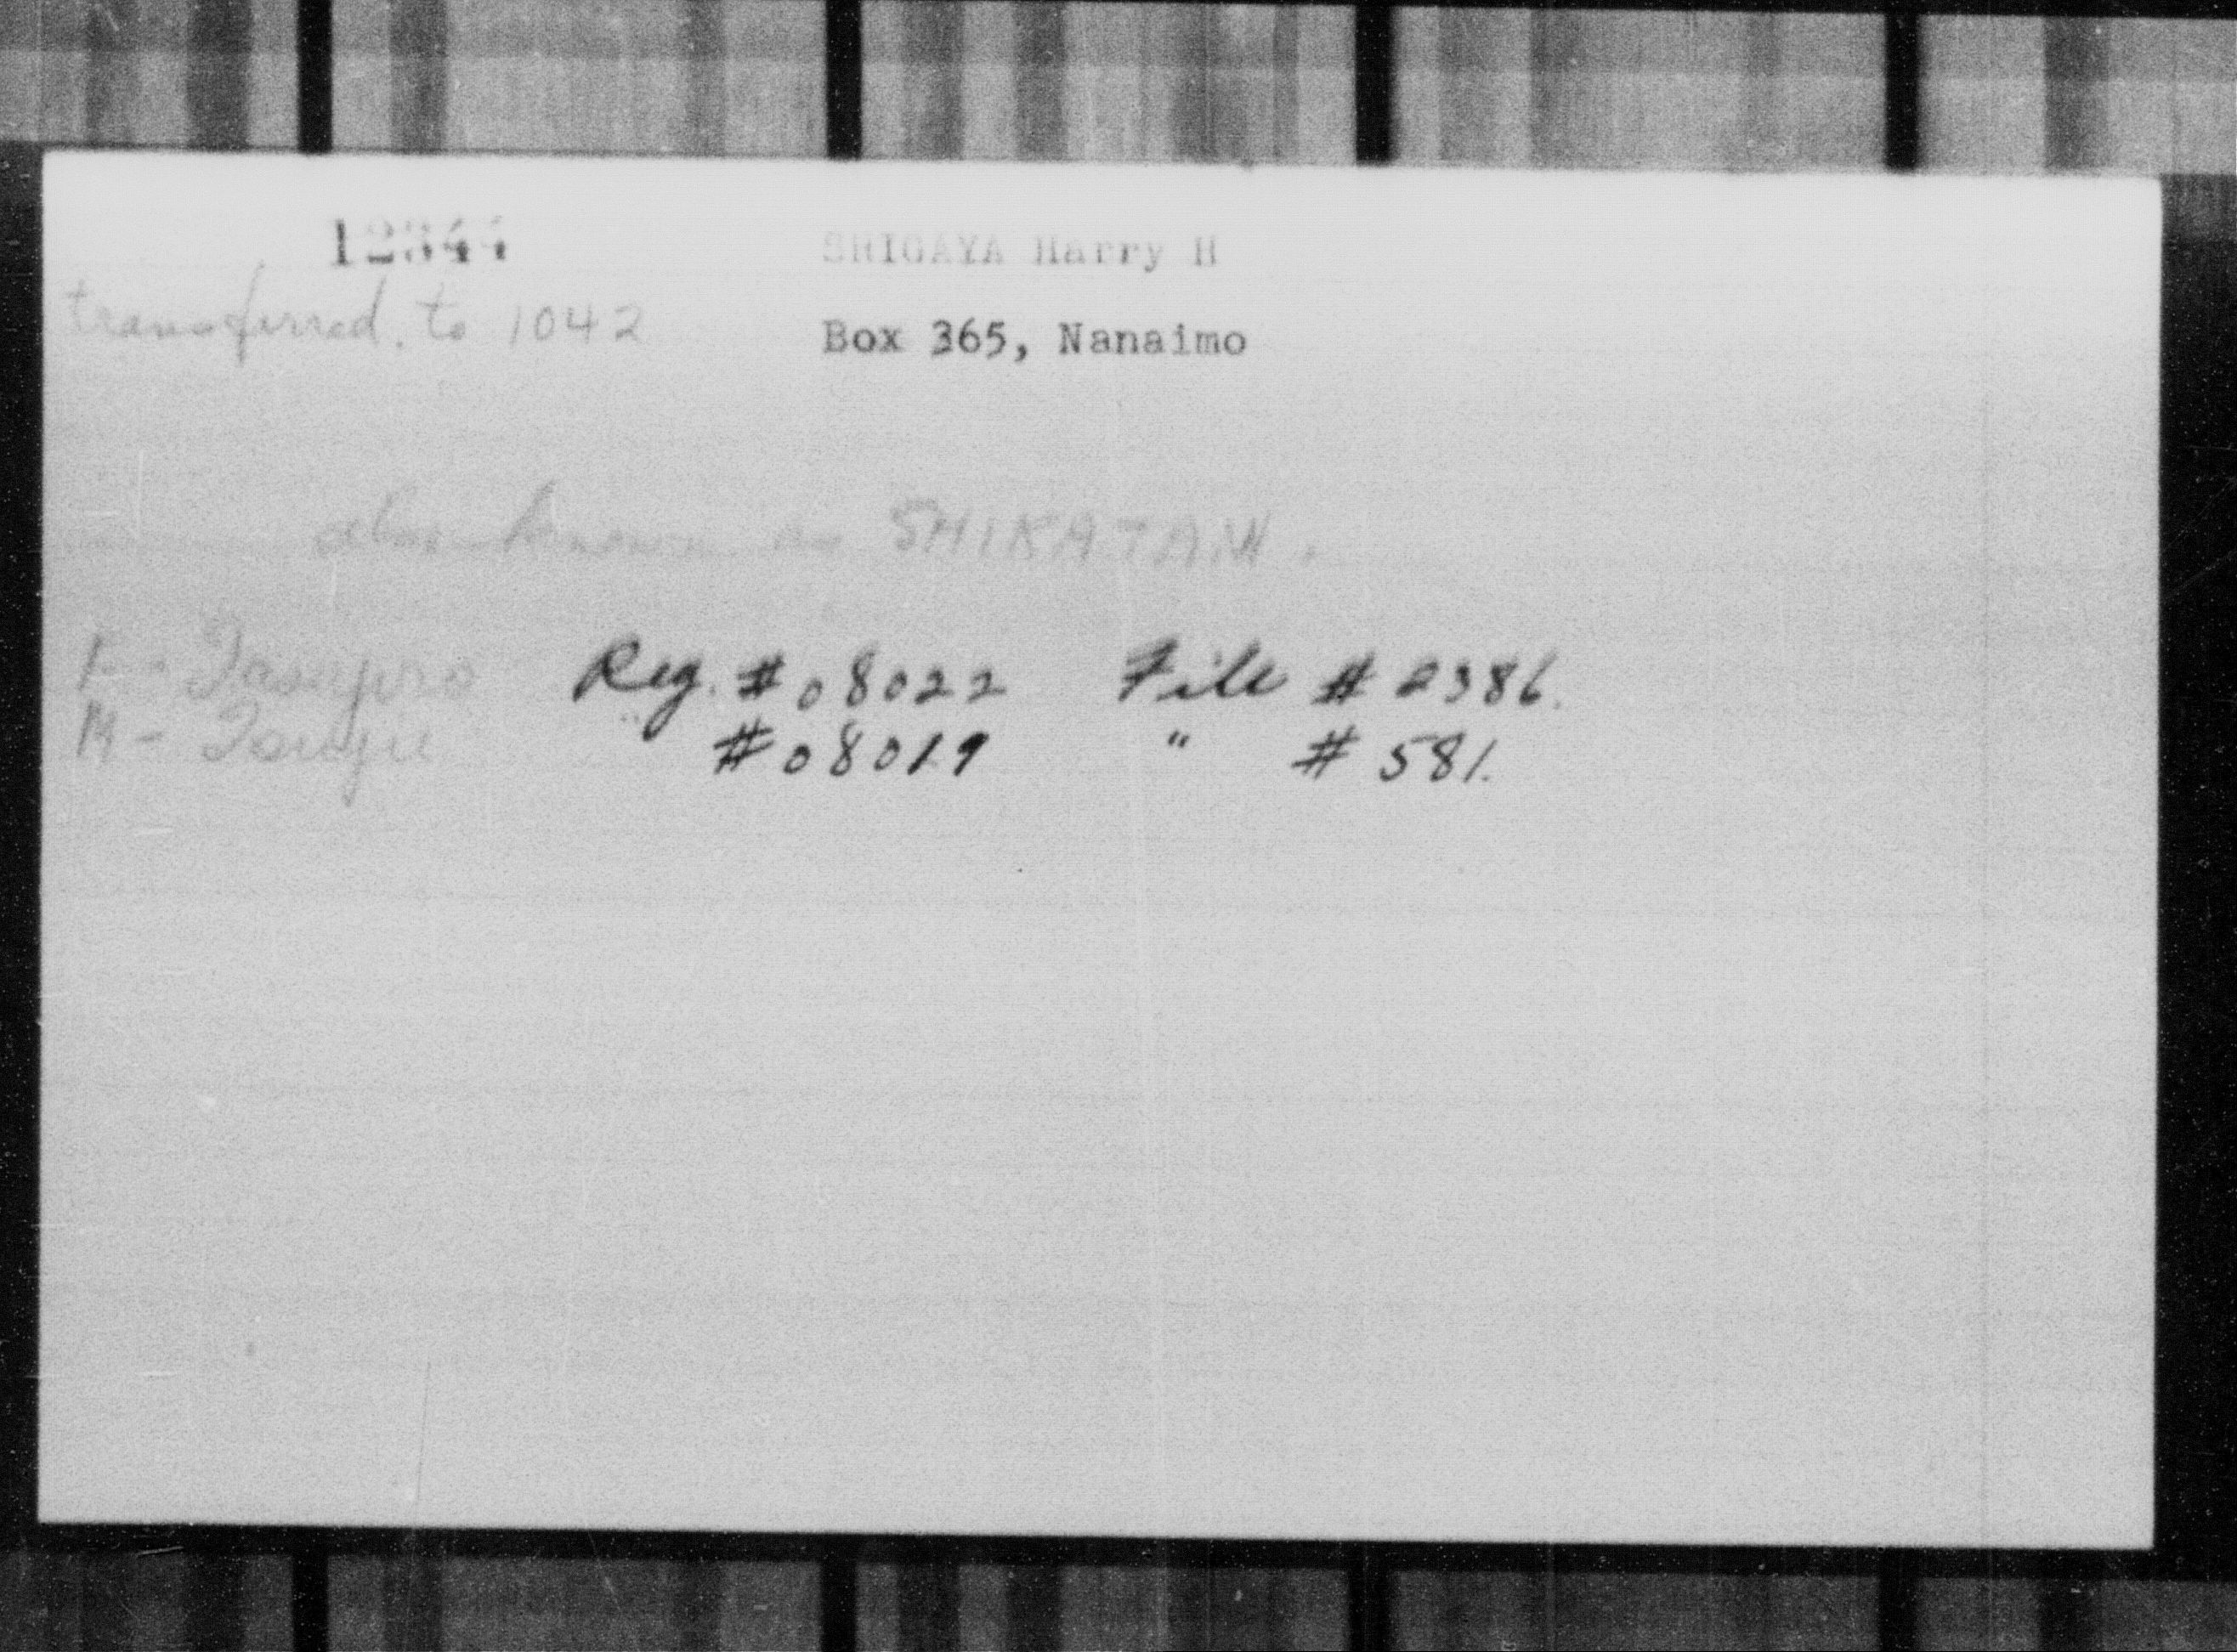 12344 SHIGAYA Harry H
transferred. to 1042 Box 365, Nanaimo
also known as SHIKATANI.
F - Reg. #08022 File #2386.
M - " #08019 " #581.